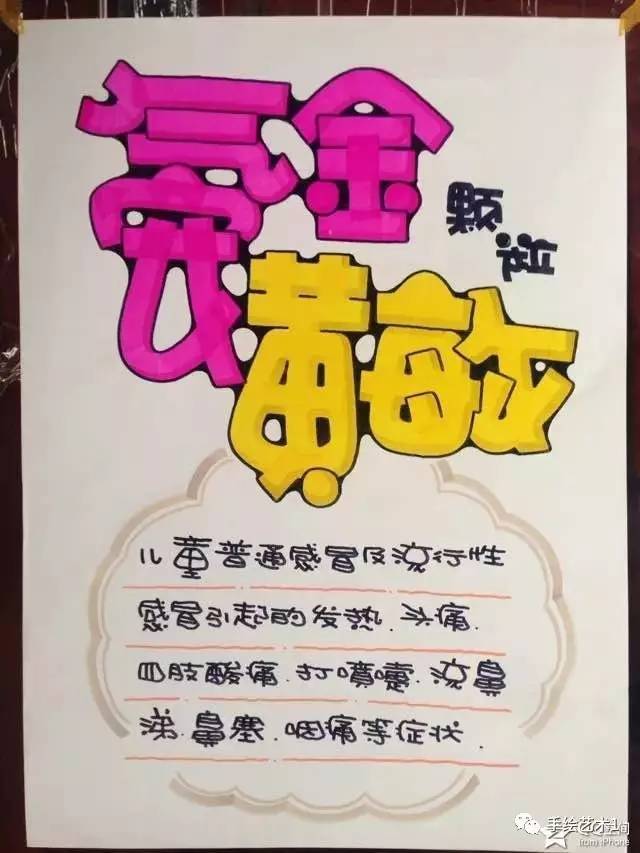 氨金
黄敏
颗粒
儿童普通感冒及流行性
感冒引起的发热.头痛.
四肢酸痛.打喷嚏.流鼻
涕.鼻塞.咽痛等症状.
手绘艺术1
from iPhone